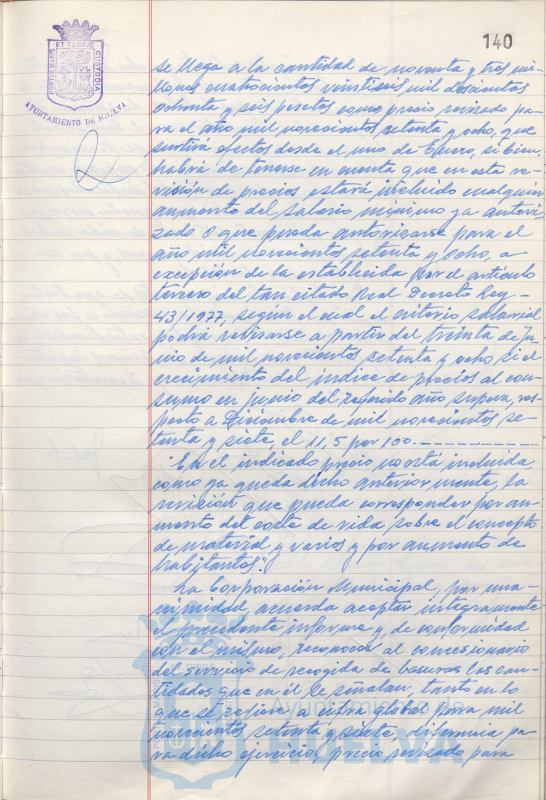 140
PORTUS MARIS ET TERRAE CUSTODIA
AYUNTAMIENTO DE HUELVA
se llega a la cantidad de noventa y tres mi-
llones cuatrocientos veintiseis mil doscientas
ochenta y seis pesetas como precio revisado pa-
ra el año mil novecientos setenta y ocho, que
surtirá efectos desde el uno de Enero, si bien,
habrá de tenerse en cuenta que en esta re-
visión de precios estará incluido cualquier
aumento del salario mínimo ya autori-
zado o que pueda autorizarse para el
año mil novecientos setenta y ocho, a
excepción de la establecida por el artículo
tercero del tan citado Real Decreto Ley-
43/1977, según el cual el criterio salarial
podrá revisarse a partir del treinta de Ju-
nio de mil novecientos setenta y ocho, si el
crecimiento del índice de precios al con-
sumo en junio del referido año supera, res-
pecto a Diciembre de mil novecientos se-
tenta y siete, el 11,5 por 100.-----------
"En el indicado precio no está incluida,
como ya queda dicho anteriormente, la
revisión que pueda corresponder por au-
mento del coste de vida sobre el concepto
de material y varios y por aumento de
habitantes".
La Corporación Municipal, por una-
nimidad, acuerda aceptar íntegramente
el precedente informe y, de conformidad
con el mismo, reconocer al concesionario
del servicio de recogida de basuras las can-
tidades que en él se señalan, tanto en lo
que se refiere a cifra global para mil
novecientos setenta y siete, diferencia pa-
ra dicho ejercicio, precio revisado para
Ayuntamiento
HUELVA